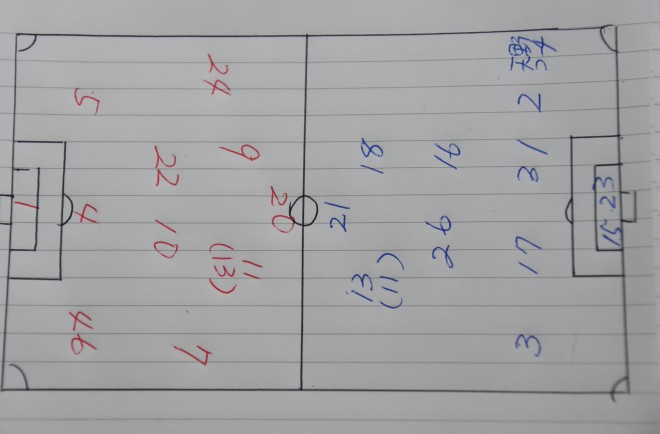 24
5
9
22
20
1
4
10
11
(13)
46
7
天野
2
18
16
31
15.23
21
26
17
13
(11)
3